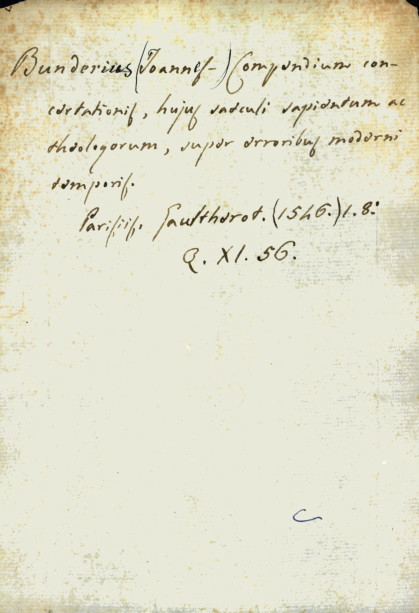 Bunderius (Joannes-) Compendium con-
certationis, hujus saeculi sapientum ac
theologorum, super erroribus moderni
temporis.
Parisiis. Gaultherot. (1546.) 1. 8.°
Q. XI. 56.